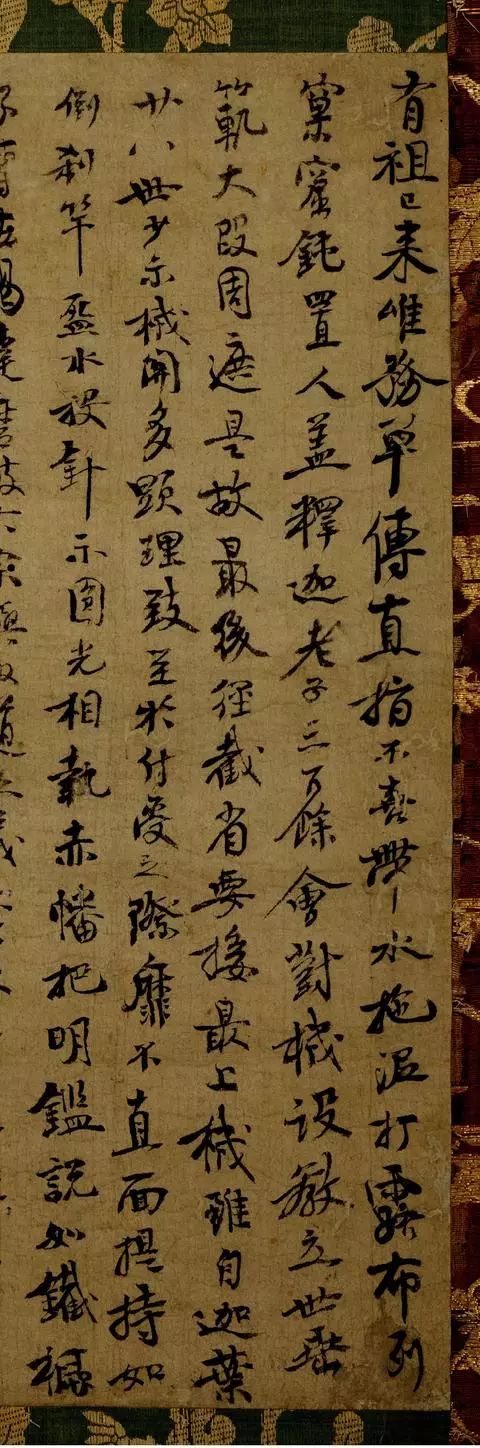 有祖已来唯務単傳直指不喜帶水拖泥打露布列
窠窟鈍置人盖釋迦老子三百餘會對機设教立世垂
範軌大段周遮是故最後徑截省要接最上機雖自迦葉
廿八世少示機関多顕理致至於付受之際靡不直面提持如
倒刹竿盌水投針示圓光相執赤幡把明鑑説如鐵橛